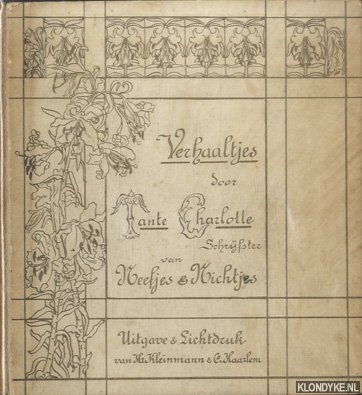 Verhaaltjes
door
Tante Charlotte
Schrijfster
van
Neefjes & Nichtjes
Uitgave & Lichtdruk
van H. Kleinmann & Co. Haarlem
KLONDYKE.NL